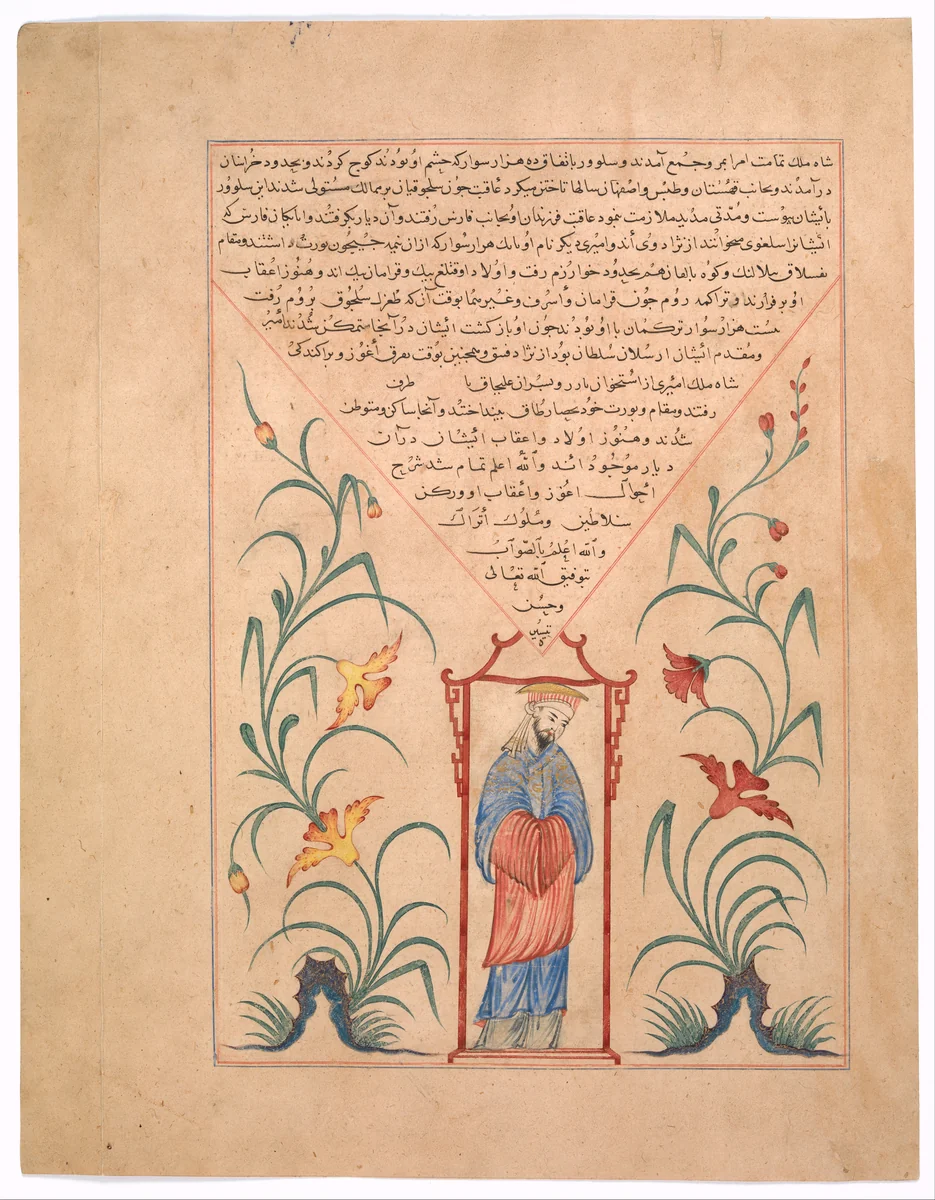 شاه ملك تمامت امرا بمرو جمع آمدند و سلوور باتفاق ده هزار سوار که حشم او بودند کوج کردند و بحدود خراسان
درآمدند و بجانب قهستان و طبس و اصفهان سالها تاختن میکرد عاقبت جون سلجوقیان بر ممالك مستولی شدند این سلوور
بایشان پیوست و مدتی مدید ملازمت نمود عاقبت فرزندان او بجانب فارس رفتند و آن دیار بگرفتند و اتابکان فارس که
ایشانرا سلغوی میخوانند از نژاد وی اند و امیری دیکر نام او با یك هزار سوار که از ان نیمه جیحون یورت داشتند و مقام
و کوه هم بحدود خوارزم رفت و اولاد او قتلغ بیك و قرامان بیك اند و هنوز اعقاب
او برقرارند و تراکمه روم جون قرامان و اسرف و غیرهما بوقت آن که طغرل سلجوق بروم رفت
بیست هزار سوار ترکمان با او بودند جون او باز کشت ایشان در آنجا متمکن شدند امیر
و مقدم ایشان ارسلان سلطان بود از نژاد و همجنین بوقت تفرق أغوز و براکندکی
شاه ملك امیری از استخوان و بسران علیجاق با طرف
رفتند و مقام و یورت خود بحصار طاق بینداختند و آنجا ساکن و متوطن
شدند و هنوز اولاد و اعقاب ایشان در آن
دیار موجود اند والله اعلم تمام شد شرح
احوال اغوز و أعقاب او و رکن
سلاطین و ملوك أتراك
والله اعلم بالصواب
بتوفیق الله تعالی
و حسن
تیسیره